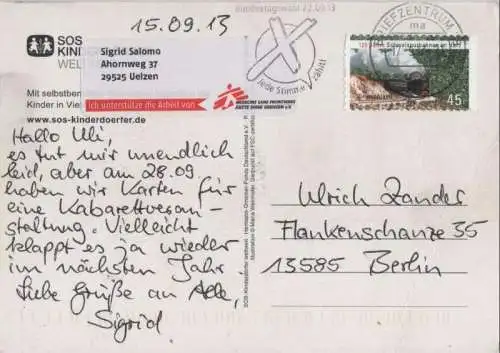 15.09.13
Bundestagswahl 22.09.13
BRIEFZENTRUM
ma
Jede Stimme zählt!
45
SOS
KINDE
WELT
Sigrid Salomo
Ahornweg 37
29525 Uelzen
Mit selbstbe
Kinder in Vie
Ich unterstütze die Arbeit von
MEDECINS SANS FRONTIERES
ÄRZTE OHNE GRENZEN e.V.
www.sos-kinderdoerfer.de
Hallo Uli,
es tut mir unendlich
leid, aber am 28.09.
haben wir Karten für
eine Kabarettveran-
staltung. Vielleicht
klappt es ja wieder
im nächsten Jahr.
Liebe Grüße an Alle,
Sigrid
Ulrich Zander
Flankenschanze 35
13585 Berlin